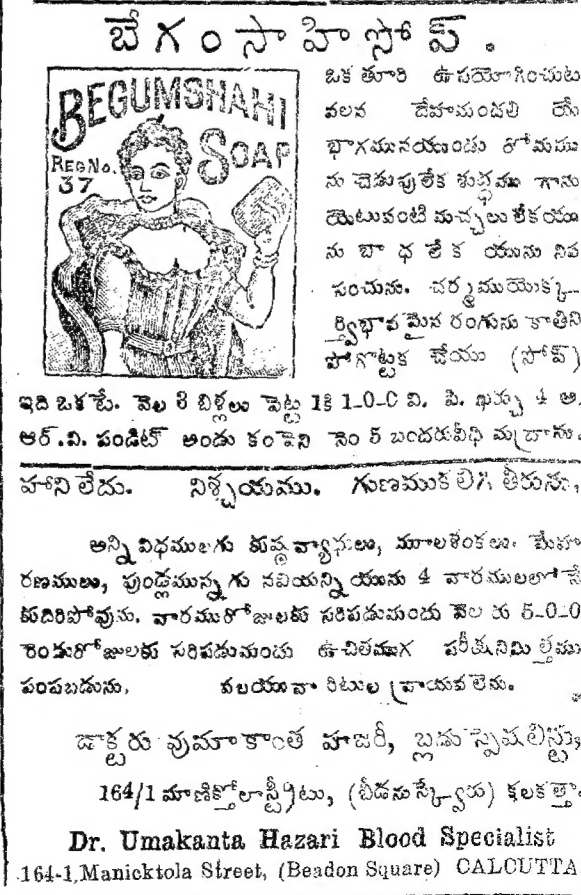 బేగంసాహిసోప్.
BEGUMSHAHI
SOAP
REG No.
37
ఒక తూరి ఉపయోగించుట
వలన దేహమందలి యే
భాగమునయుండు రోమము
ను చెడుపులేక శుద్ధము గాను
యెటువంటి మచ్చలు లేకయు
ను బాధ లేక యును నివ
సంచును. చర్మముయొక్క
మైన రంగును కాతిని
పోగొట్టక చేయు (సోప్)
ఇది ఒకటే. వెల 3 బిళ్లలు పెట్టె 1కి 1-0-0 వి. పి. ఖర్చు 4 అ.
ఆర్.వి. పండిట్ అండు కంపెని నెం 5 బందరువీధి మద్రాసు.
హానిలేదు. నిశ్చయము. గుణముకలిగి తీరును.
అన్నివిధములగు కుష్ఠవ్యాధులు, మూలశంకలు. మేహ
రణములు, పుండ్లమున్నగు నవియన్నియును 4 వారములలోనే
కుదిరిపోవును. వారమురోజులకు సరిపడుమందు వెల రు 5-0-0
రెండురోజులకు సరిపడుమందు ఉచితముగ పరీక్షనిమిత్తము
పంపబడును. వలయువారిటుల వ్రాయవలెను.
డాక్టరు వుమాకాంత హజరీ, బ్లడుస్పెషలిస్టు,
164/1 మాణిక్తోలాస్ట్రీటు, (బీడనుస్క్వేరు) కలకత్తా.
Dr. Umakanta Hazari Blood Specialist
164-1, Manicktola Street, (Beadon Square) CALCUTTA